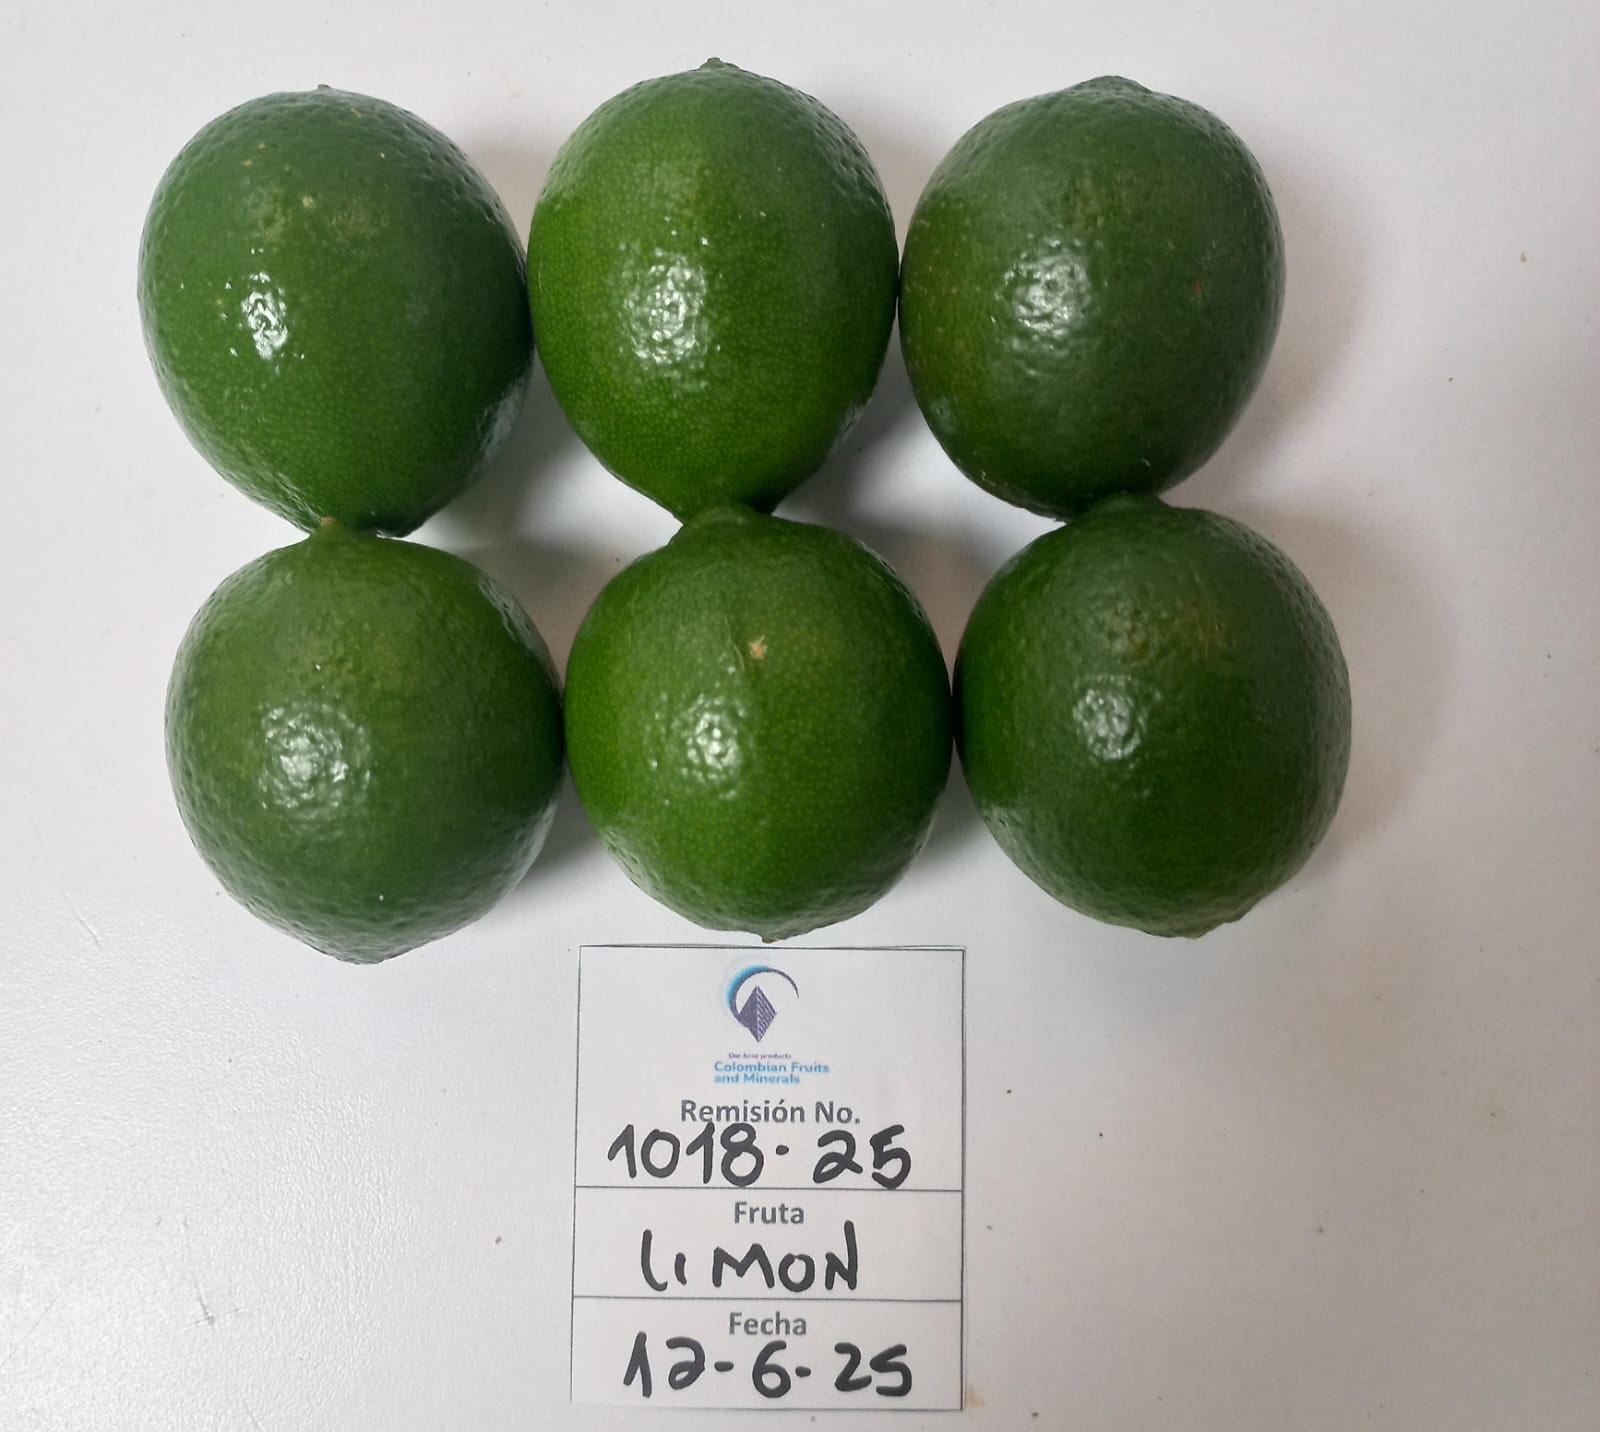 Our best products
Colombian Fruits
and Minerals
Remisión No.
1018-25
Fruta
LIMON
Fecha
12-6-25